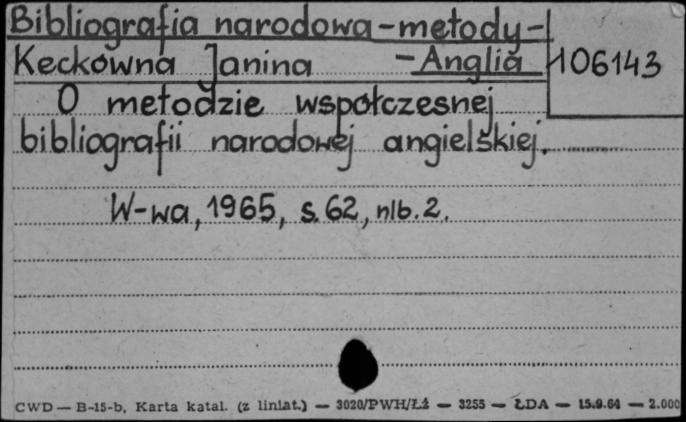 Bibliografia narodowa-metody-
Keckówna Janina -Anglia
106143
O metodzie współczesnej
bibliografii narodowej angielskiej.
W-wa, 1965, s. 62, nlb. 2.
CWD — B-15-b, Karta katal. (z liniat.) — 3020/PWH/Łż — 3255 — ŁDA — 15.9.64 — 2.000